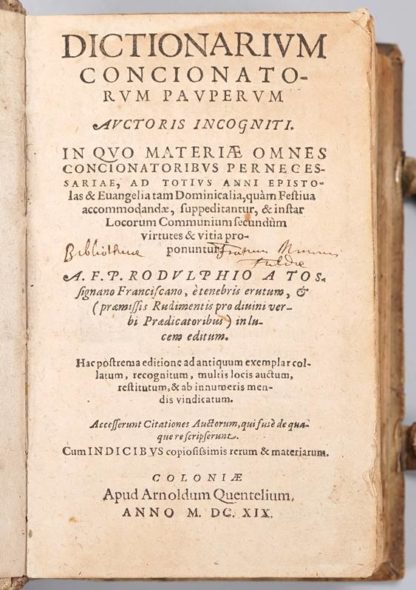 DICTIONARIVM
CONCIONATO-
RVM PAVPERVM
AVCTORIS INCOGNITI.
IN QVO MATERIÆ OMNES
CONCIONATORIBVS PERNECES-
SARIAE, AD TOTIVS ANNI EPISTO-
las & Euangelia tam Dominicalia, quàm Festiua
accommodandæ, suppeditantur, & instar
Locorum Communium secundùm
virtutes & vitia pro-
ponuntur.
Bibliothecæ Fratrum Minorum
Fuldæ
A. F. P. RODVLPHIO A TOS-
signano Franciscano, è tenebris erutum, &
(præmissis Rudimentis pro diuini ver-
bi Prædicatoribus) in lu-
cem editum.
Hac postrema editione ad antiquum exemplar col-
latum, recognitum, multis locis auctum,
restitutum, & ab innumeris men-
dis vindicatum.
Accesserunt Citationes Auctorum, qui fusè de qua-
que re scripserunt.
Cum INDICIBVS copiosissimis rerum & materiarum.
COLONIÆ
Apud Arnoldum Quentelium,
ANNO M. DC. XIX.